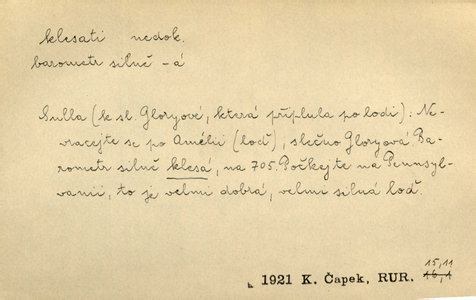 klesati nedok.
barometr silně -á
Sulla (k sl. Gloryové, která připlula po lodi): Ne-
vracejte se po Amélii (loď), slečno Gloryová Ba-
rometr silně klesá, na 705. Počkejte na Pennsyl-
vanii, to je velmi dobrá, velmi silná loď.
15,11
1921 K. Čapek, RUR. 16,1